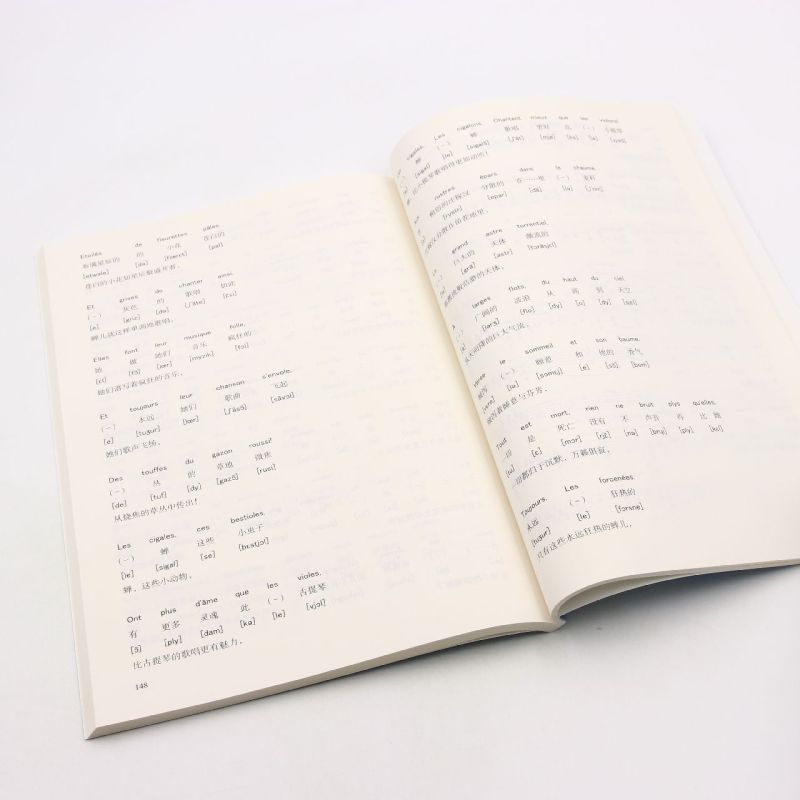 Étoilés de fleurettes pâles
布满星辰的 的 小花 苍白的
[etwale] [də] [flœrɛt] [pal]
苍白的小花如星辰般盛开着。
Et grises de chanter ainsi.
(一) 灰色 的 歌唱 如此
[e] [griz] [də] [ʃɑ̃te] [ɛ̃si]
蝉儿就这样单调地歌唱。
Elles font leur musique folle,
她 做 她们 音乐 疯狂的
[ɛl] [fɔ̃] [lœr] [myzik] [fɔl]
她们谱写着疯狂的音乐。
Et toujours leur chanson s'envole,
(一) 永远 她们 歌曲 飞起
[e] [tuʒur] [lœr] [ʃɑ̃sɔ̃] [sɑ̃vɔl]
她们歌声飞扬。
Des touffes du gazon roussi!
(一) 丛 的 草地 微焦
[de] [tuf] [dy] [gazɔ̃] [rusi]
从烧焦的草丛中传出！
Les cigales, ces bestioles,
(一) 蝉 这些 小虫子
[le] [sigal] [se] [bɛstjɔl]
蝉，这些小动物，
Ont plus d'âme que les violes,
有 更多 灵魂 此 (一) 古提琴
[ɔ̃] [ply] [dam] [kə] [le] [vjɔl]
比古提琴的歌唱更有魅力。
148
cigales, Les cigalons, Chantent mieux que les violons!
蝉 (一) 蝉 歌唱 更好 比 (一) 小提琴
[sigal] [le] [sigalɔ̃] [ʃɑ̃t] [mjø] [kə] [le] [vjɔlɔ̃]
比小提琴歌唱得更加动听！
rustres épars dans le chaume,
粗俗的庄稼汉 分散的 在……里 (一) 麦秆
[rystr] [epar] [dɑ̃] [lə] [ʃom]
grand astre torrentiel,
巨大的 天体 激流的
[grɑ̃] [astr] [tɔrɑ̃sjɛl]
À larges flots, du haut du ciel,
广阔的 波浪 从 高 到 天空
[a] [larʒ] [flo] [dy] [o] [dy] [sjɛl]
从天而降的巨大气流，
Verse le sommeil et son baume.
倾泻 睡意 和 他的 香气
[vɛrs] [lə] [sɔmɛj] [e] [sɔ̃] [bom]
倾泻着睡意与芬芳。
Tout est mort, rien ne bruit plys qu'elles,
一切 是 死亡 没有 不 声音 再 比她
[tu] [ɛ] [mɔr] [rjɛ̃] [nə] [brɥi] [ply] [kɛl]
一切都归于沉默，万籁俱寂。
Toujours, Les forcenées,
永远 (一) 狂热的
[tuʒur] [le] [fɔrsne]
只有这些永远狂热的蝉儿，